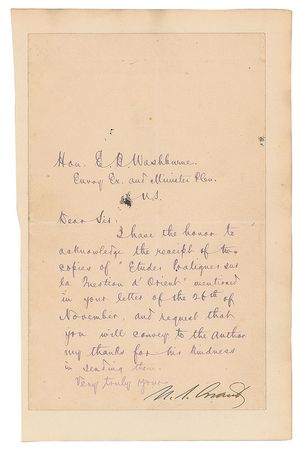 Hon. E. B. Washburne.
Envoy Ex. and Minister Plen.
of U.S.
Dear Sir:
I have the honor to
acknowledge the receipt of two
copies of "Etudes Pratiques sur
la Question d'Orient" mentioned
in your letter of the 26th of
November, and request that
you will convey to the author
my thanks for his kindness
in sending them.
Very truly yours
U. S. Grant